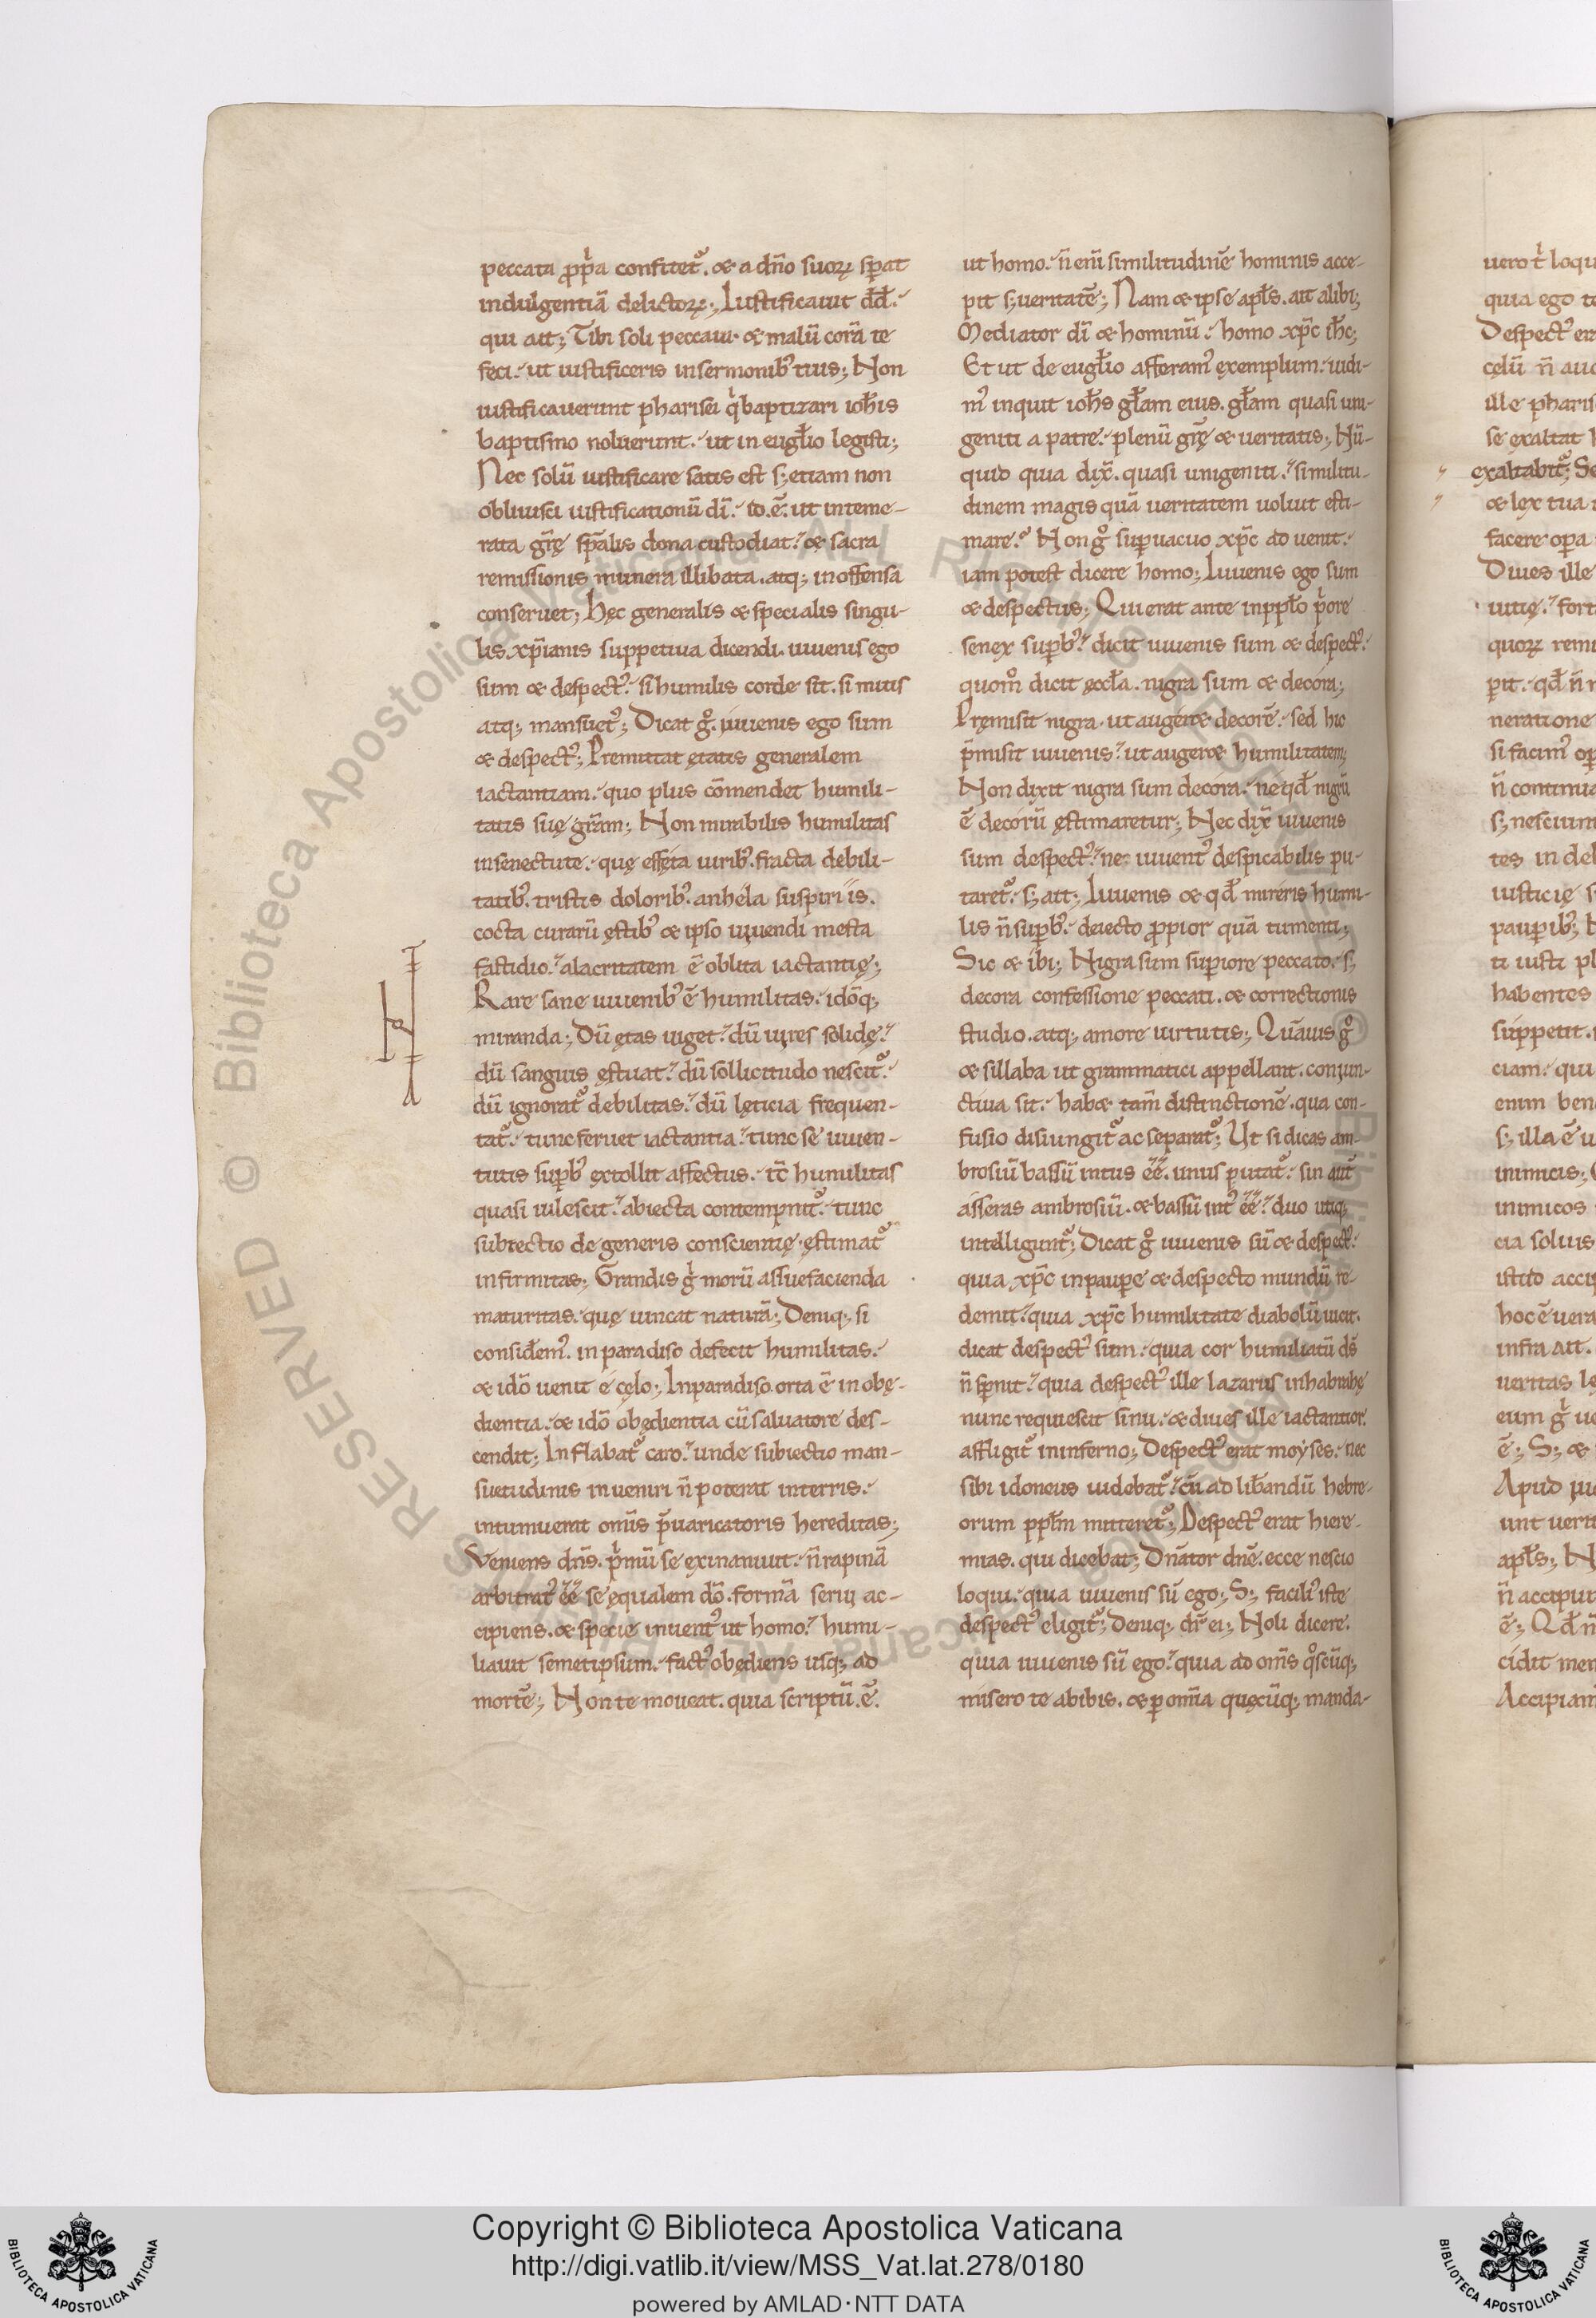 peccata ꝓpͥa confitet᷒. & a dn̄o suoꝝ sꝑat
indulgentiā delictoꝝ; Iustificauit dd̄.
qui ait; Tibi soli peccaui & malū corā te
feci. ut iustificeris in sermonibꝰ tuis; Non
iustificauerunt pharisei qͥ baptizari ioħis
baptismo noluerunt. ut in eugłio legisti;
Nec solū iustificare satis est s; etiam non
obliuisci iustificationū dī. id. ē. ut inteme-
rata gr̄ę sp̄alis dona custodiat. & sacra
remissionis munera illibata. atq; inoffensa
conseruet; Hęc generalis & specialis singu-
lis xp̄ianis suppetiua dicendi. iuuenis ego
sum & despectꝰ. si humilis corde sit. si mitis
atq; mansuetꝰ; Dicat gͦ. iuuenis ego sum
& despectꝰ; Premittat ętatis generalem
iactantiam. quo plus cōmendet humili-
tatis suę gr̄am; Non mirabilis humilitas
in senectute. quę effęta uiribꝰ. fracta debili-
tatibꝰ. tristis doloribꝰ. anhela suspiriis.
cocta curarū ęstibꝰ & ipso uiuendi mesta
fastidio. alacritatem ē oblita iactantię;
Rare sane iuuenibꝰ ē humilitas. idōq;
miranda; Dū ętas uiget. dū uires solidę.
dū sanguis ęstuat. dū sollicitudo nescit᷒.
dū ignorat᷒ debilitas. dū lęticia frequen-
tat᷒. tunc feruet iactantia. tunc se iuuen-
tutis suꝑbꝰ extollit affectus. tc̄ humilitas
quasi uilescit. abiecta contempnit᷒. tunc
subiectio degeneris conscientię. ęstimat᷒
infirmitas; Grandis gͥ morū assuefacienda
maturitas. quę uincat naturā; Deniq; si
considemꝰ. in paradiso defecit humilitas.
& idō uenit e cęlo; In paradiso orta ē inobę-
dientia. & idō obędientia cū saluatore des-
cendit; Inflabat᷒ caro. unde subiectio man-
suetudinis inueniri n̄ poterat in terris.
intumuerat om̄is p̄uaricatoris hereditas;
Veniens dn̄s. pͥmū se exinaniuit. n̄ rapinā
arbitratꝰ ēē se ęqualem dō. formā serui ac-
cipiens. & specie inuentꝰ ut homo. humi-
liauit semetipsum. factꝰ obędiens usq; ad
mortē; Non te moueat. quia scriptū. ē.
ut homo. n̄ enī similitudinē hominis acce-
pit s; ueritatē; Nam & ipse apłs. ait alibi;
Mediator dī & hominū. homo xp̄c iħc;
Et ut de eugłio afferamꝰ exemplum. uidi-
mꝰ inquit ioħs głam eius. głam quasi uni-
geniti a patre. plenū gr̄ę & ueritatis; Nū-
quid quia dix̄. quasi unigeniti. similitu-
dinem magis quā ueritatem uoluit esti-
mare. Non gͦ suꝑuacuo xp̄c aduenit.
iam potest dicere homo; Iuuenis ego sum
& despectus; Qui erat ante in pplo pͥore
senex suꝑbꝰ. dicit iuuenis sum & despectꝰ.
quomͦ dicit eccła. nigra sum & decora;
Pręmisit nigra. ut augeret decorē. sed hic
p̄misit iuuenis. ut auger& humilitatem;
Non dixit nigra sum decora. ne qd̄ nigrū
ē decorū ęstimaretur; Nec dix̄ iuuenis
sum despectꝰ. ne iuuentꝰ despicabilis pu-
taret᷒. s; ait; Iuuenis & qd̄ mireris humi-
lis n̄ suꝑbꝰ. deiecto ꝓpior quā tumenti;
Sic & ibi; Nigra sum suꝑiore peccato. s;
decora confessione peccati. & correctionis
studio. atq; amore uirtutis; Quāuis gͦ
& sillaba ut grammatici appellant. coniun-
ctiua sit. hab& tam̄ distinctionē. qua con-
fusio disiungit᷒ ac separat᷒; Ut si dicas am-
brosiū bassū intus ēē. unus putat᷒. sin aut̄
asseras ambrosiū. & bassū intꝰ ēē. duo utiq;
intelligunt᷒; Dicat gͦ iuuenis sū & despectꝰ.
quia xp̄c in pauꝑe & despecto mundū re-
demit. quia xp̄c humilitate diabolū uicit.
dicat despectꝰ sum. quia cor humiliatū dś
n̄ sꝑnit. quia despectꝰ ille lazarus in habrahę
nunc requiescit sinu. & diues ille iactantior.
affligit᷒ in inferno; Despectꝰ erat moyses. nec
sibi idoneus uidebat᷒. cū ad lib̄andū hebre-
orum ppłm mitteret᷒; Despectꝰ erat hiere-
mias. qui dicebat; Dn̄ator dn̄ē. ecce nescio
loqui. quia iuuenis sū ego; S; faciliꝰ iste
despectꝰ eligit᷒; Deniq; dr̄ ei; Noli dicere.
quia iuuenis sū ego. quia ad om̄s qͦscūq;
misero te abibis. & ꝑ om̄ia quęcūq; manda-
uero t̄ loqu
quia ego te
Despectꝰ er
cęlū n̄ aud
ille pharis
se exaltat
exaltabit᷒; Se
& lex tua
facere opa
Diues ille
uitię. fort
quoꝝ rem
ꝑit. qd̄ n̄
neratione
si facimꝰ oꝑ
n̄ continua
s; nescium
tes in del
iusticię s
pauꝑibꝰ;
ti iusti pl
habentes
suppetit.
ciam. qui
enim ben
s; illa ē u
inimicis;
inimicos
cia solius
istid acci
hoc ē uera
infra ait.
ueritas le
eum gͥ ue
ē; S; &
Apud iu
unt ueri
apłs; N
n̄ accipit
ē; Qd̄ n
cidit mer
Accipiam
Copyright © Biblioteca Apostolica Vaticana
http://digi.vatlib.it/view/MSS_Vat.lat.278/0180
powered by AMLAD·NTT DATA
BIBLIOTECA APOSTOLICA VATICANA
BIBLIOTECA APOSTOLICA VATICANA